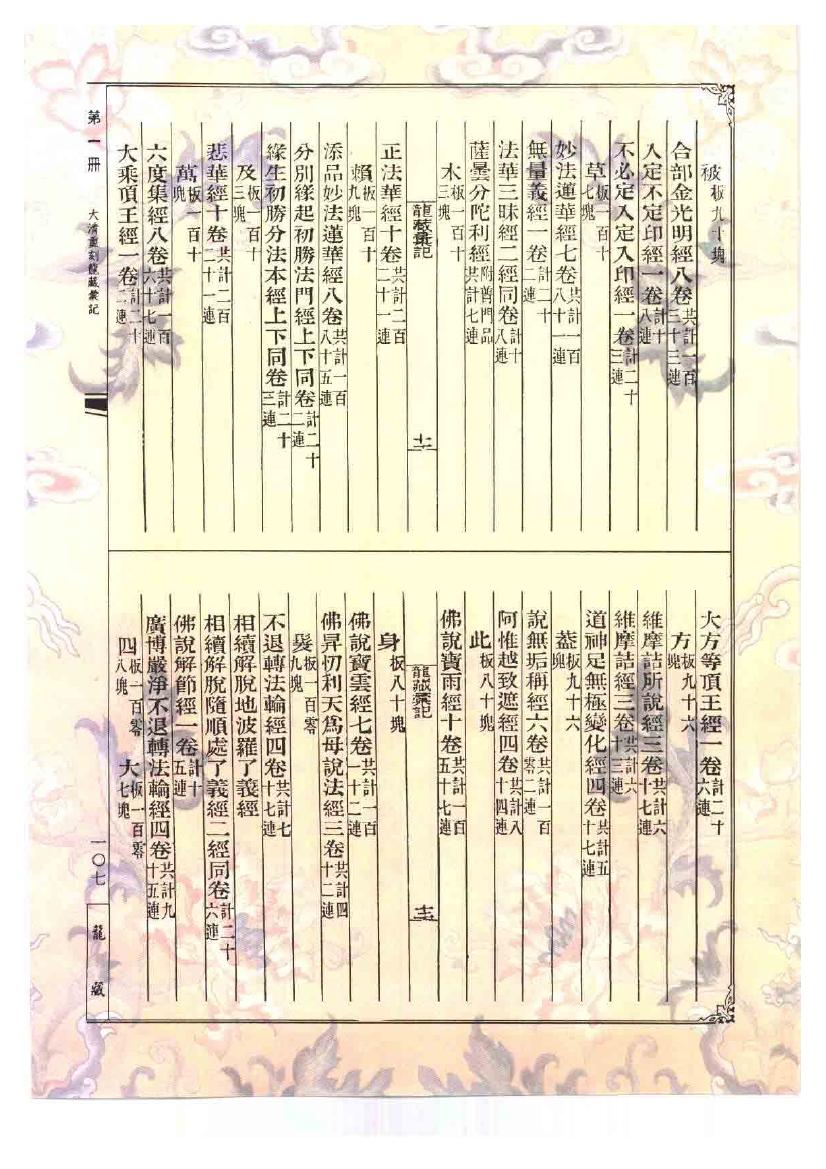 被板九十塊
合部金光明經八卷共計一百三十三連
入定不定印經一卷計十八連
不必定入定入印經一卷計二十三連
草板一百十七塊
妙法蓮華經七卷共計一百八十一連
無量義經一卷計二十二連
法華三昧經二經同卷計十八連
薩曇分陀利經附普門品共計七連
木板一百十三塊
龍藏彙記
十二
正法華經十卷共計二百二十一連
賴板一百十九塊
添品妙法蓮華經八卷共計一百八十五連
分別緣起初勝法門經上下同卷計二十二連
緣生初勝分法本經上下同卷計二十三連
及板一百十三塊
悲華經十卷共計二百二十一連
萬板一百十塊
六度集經八卷共計一百六十七連
大乘頂王經一卷計二十二連
大方等頂王經一卷計二十六連
方板九十六塊
維摩詰所說經三卷共計六十七連
維摩詰經三卷共計六十三連
道神足無極變化經四卷共計五十七連
蓋板九十六塊
說無垢稱經六卷共計一百零二連
阿惟越致遮經四卷共計八十四連
此板八十塊
佛說寶雨經十卷共計一百五十七連
龍藏彙記
十三
身板八十塊
佛說寶雲經七卷共計一百一十二連
佛昇忉利天為母說法經三卷共計四十二連
髮板一百零九塊
不退轉法輪經四卷共計七十七連
相續解脫地波羅了義經
相續解脫隨順處了義經二經同卷計二十六連
佛說解節經一卷計十五連
廣博嚴淨不退轉法輪經四卷共計九十五連
四板一百零八塊 大板一百零七塊
第一冊 大清重刻龍藏彙記
一〇七
龍藏